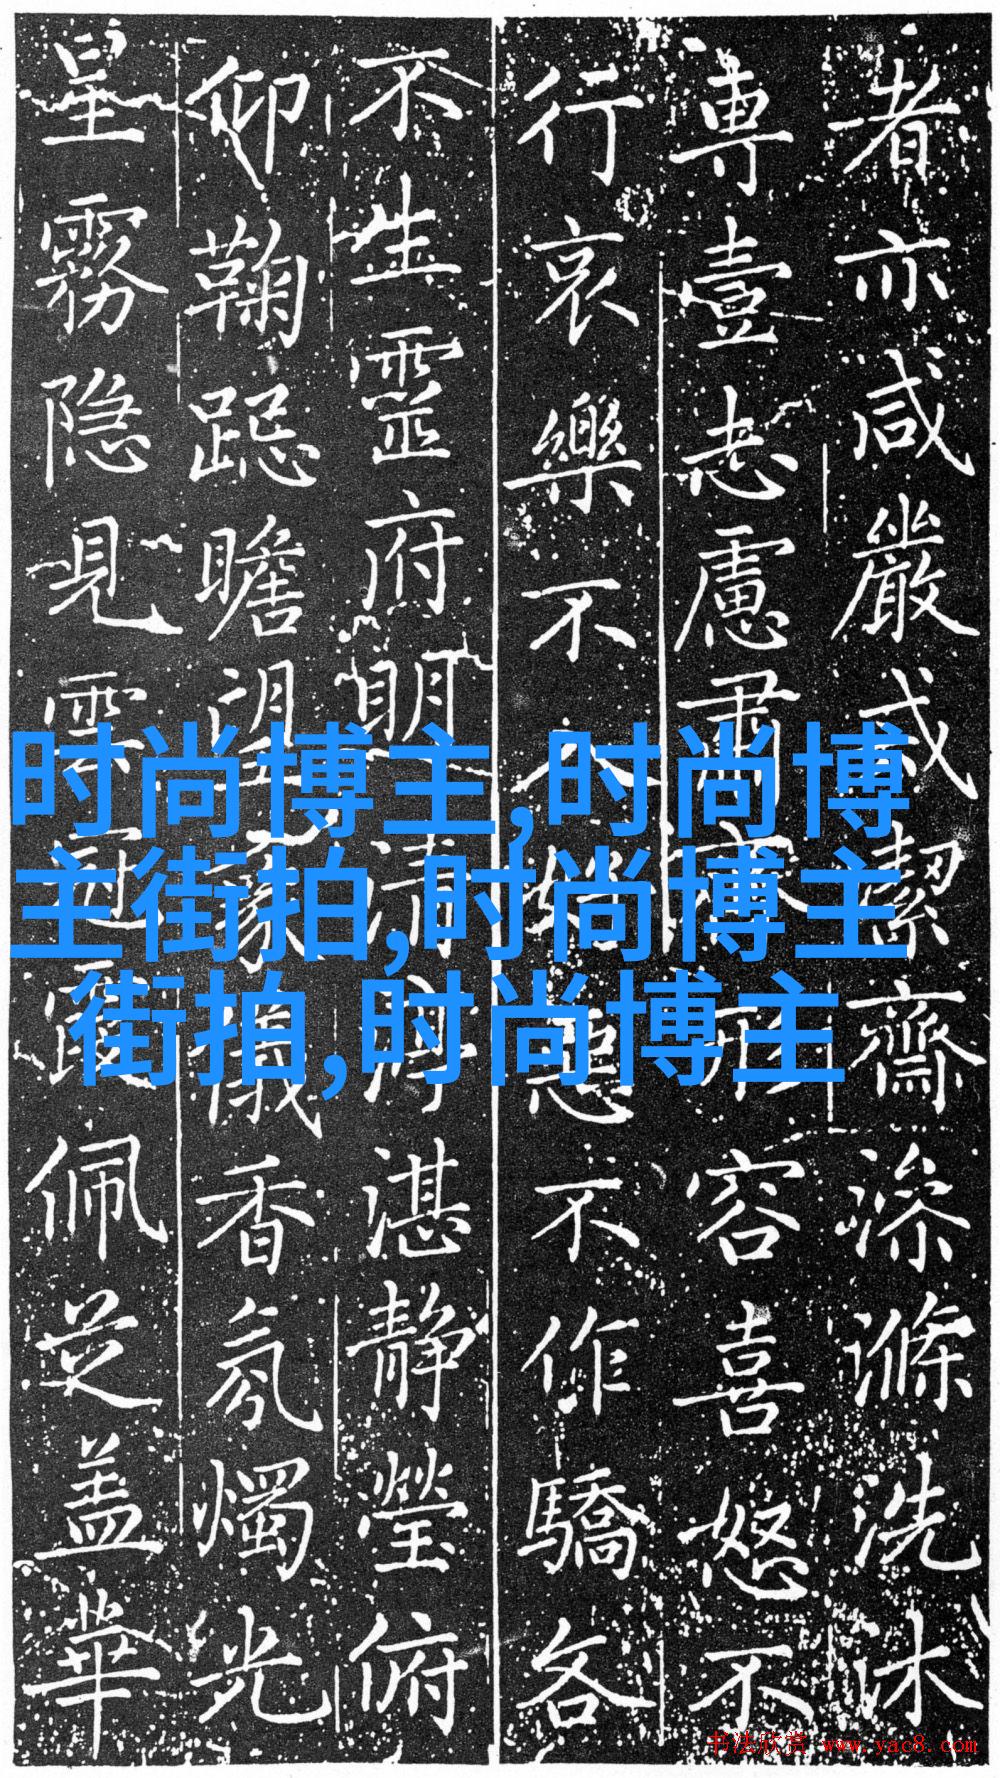 者亦咸嚴戒潔齋澡滌洗沐
專壹志慮肅容喜怒不
行哀樂不不作驕各
不生靈府明清湛靜瑩俯
仰鞠跽瞻望儀香氛燭光
星霧隐見雲冠霞佩芝盖華
时尚博主,时尚博
主街拍,时尚博主
街拍,时尚博主
书法欣赏 www.yac8.com